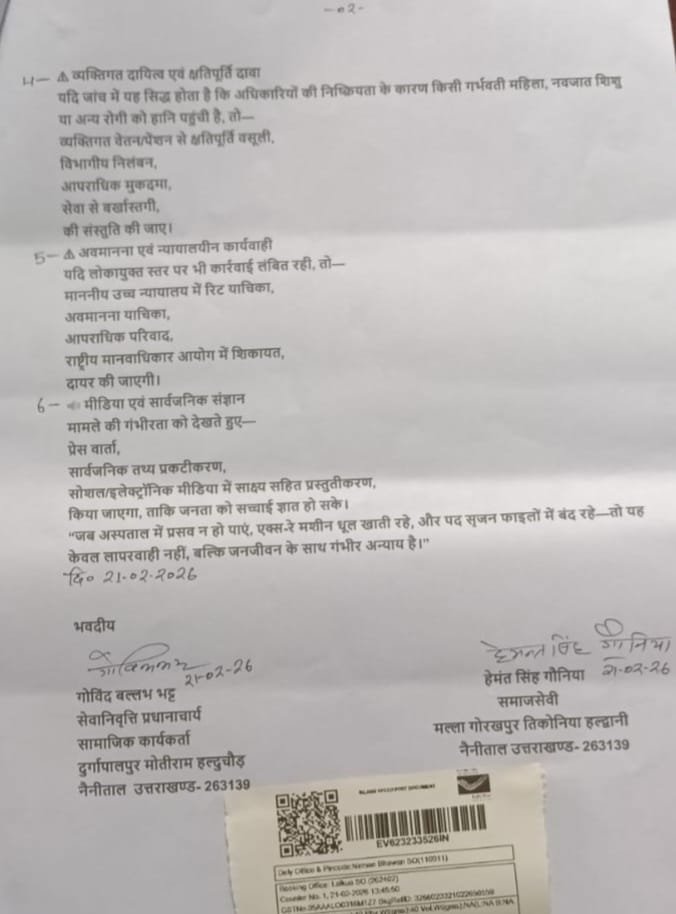 -02-
4- ⚠ व्यक्तिगत दायित्व एवं क्षतिपूर्ति दावा
यदि जांच में यह सिद्ध होता है कि अधिकारियों की निष्क्रियता के कारण किसी गर्भवती महिला, नवजात शिशु
या अन्य रोगी को हानि पहुंची है, तो—
व्यक्तिगत वेतन/पेंशन से क्षतिपूर्ति वसूली,
विभागीय निलंबन,
आपराधिक मुकदमा,
सेवा से बर्खास्तगी,
की संस्तुति की जाए।
5- ⚠ अवमानना एवं न्यायालयीन कार्यवाही
यदि लोकायुक्त स्तर पर भी कार्रवाई लंबित रही, तो—
माननीय उच्च न्यायालय में रिट याचिका,
अवमानना याचिका,
आपराधिक परिवाद,
राष्ट्रीय मानवाधिकार आयोग में शिकायत,
दायर की जाएगी।
6- 📢 मीडिया एवं सार्वजनिक संज्ञान
मामले की गंभीरता को देखते हुए—
प्रेस वार्ता,
सार्वजनिक तथ्य प्रकटीकरण,
सोशल/इलेक्ट्रॉनिक मीडिया में साक्ष्य सहित प्रस्तुतीकरण,
किया जाएगा, ताकि जनता को सच्चाई ज्ञात हो सके।
“जब अस्पताल में प्रसव न हो पाएं, एक्स-रे मशीन धूल खाती रहे, और पद सृजन फाइलों में बंद रहे—तो यह
केवल लापरवाही नहीं, बल्कि जनजीवन के साथ गंभीर अन्याय है।”
दि० 21-02-2026
भवदीय
21-02-26
गोविंद बल्लभ भट्ट
सेवानिवृत्ति प्रधानाचार्य
सामाजिक कार्यकर्ता
दुर्गापालपुर मोतीराम हल्दुचौड़
नैनीताल उत्तराखण्ड- 263139
हेमन्त सिंह गौनिया
हेमंत सिंह गौनिया 21-02-26
समाजसेवी
मल्ला गोरखपुर तिकोनिया हल्द्वानी
नैनीताल उत्तराखण्ड- 263139
EV623233526IN
Dely Office & Pincode:Nirman Bhawan SO(110011)
Booking Office: Lalkua SO (262402)
Counter No. 1, 21-02-2026 13:45:50